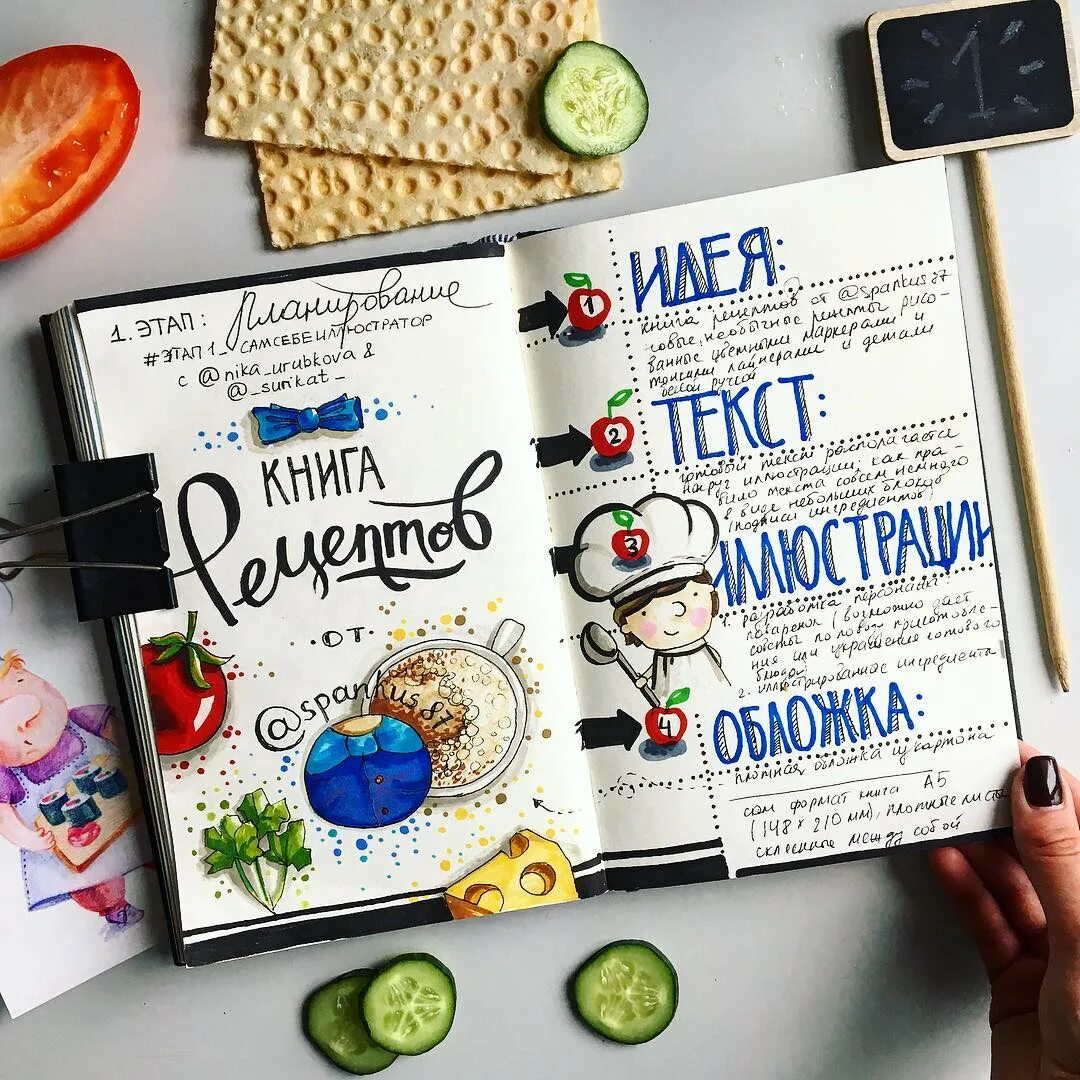 1. ЭТАП: Планирование
#ЭТАП1_САМСЕБЕИЛЛЮСТРАТОР
с @nika_urubkova &
@_sunkat_
КНИГА
Рецептов
·ОТ·
@spankus87
1
1
ИДЕЯ:
книга рецептов от @spankus87
новые, необычные рецепты рисо-
ванные цветными маркерами и
тонкими лайнерами и детали
белой ручкой
2
ТЕКСТ:
готовый текст располагается
вокруг иллюстрации, как пра
вило текста совсем немного
в виде небольших блоков
(подписи ингредиентов)
3
ИЛЛЮСТРАЦИИ
1. разработка персонажа:
поваренок (возможно дает
советы по поводу приготовле-
ния или украшения готового
блюда)
2. иллюстрированные ингредиенты
4
ОБЛОЖКА:
плотная обложка из картона
сам формат книги А5
(148 х 210 мм), плотные листы
склеенные между собой